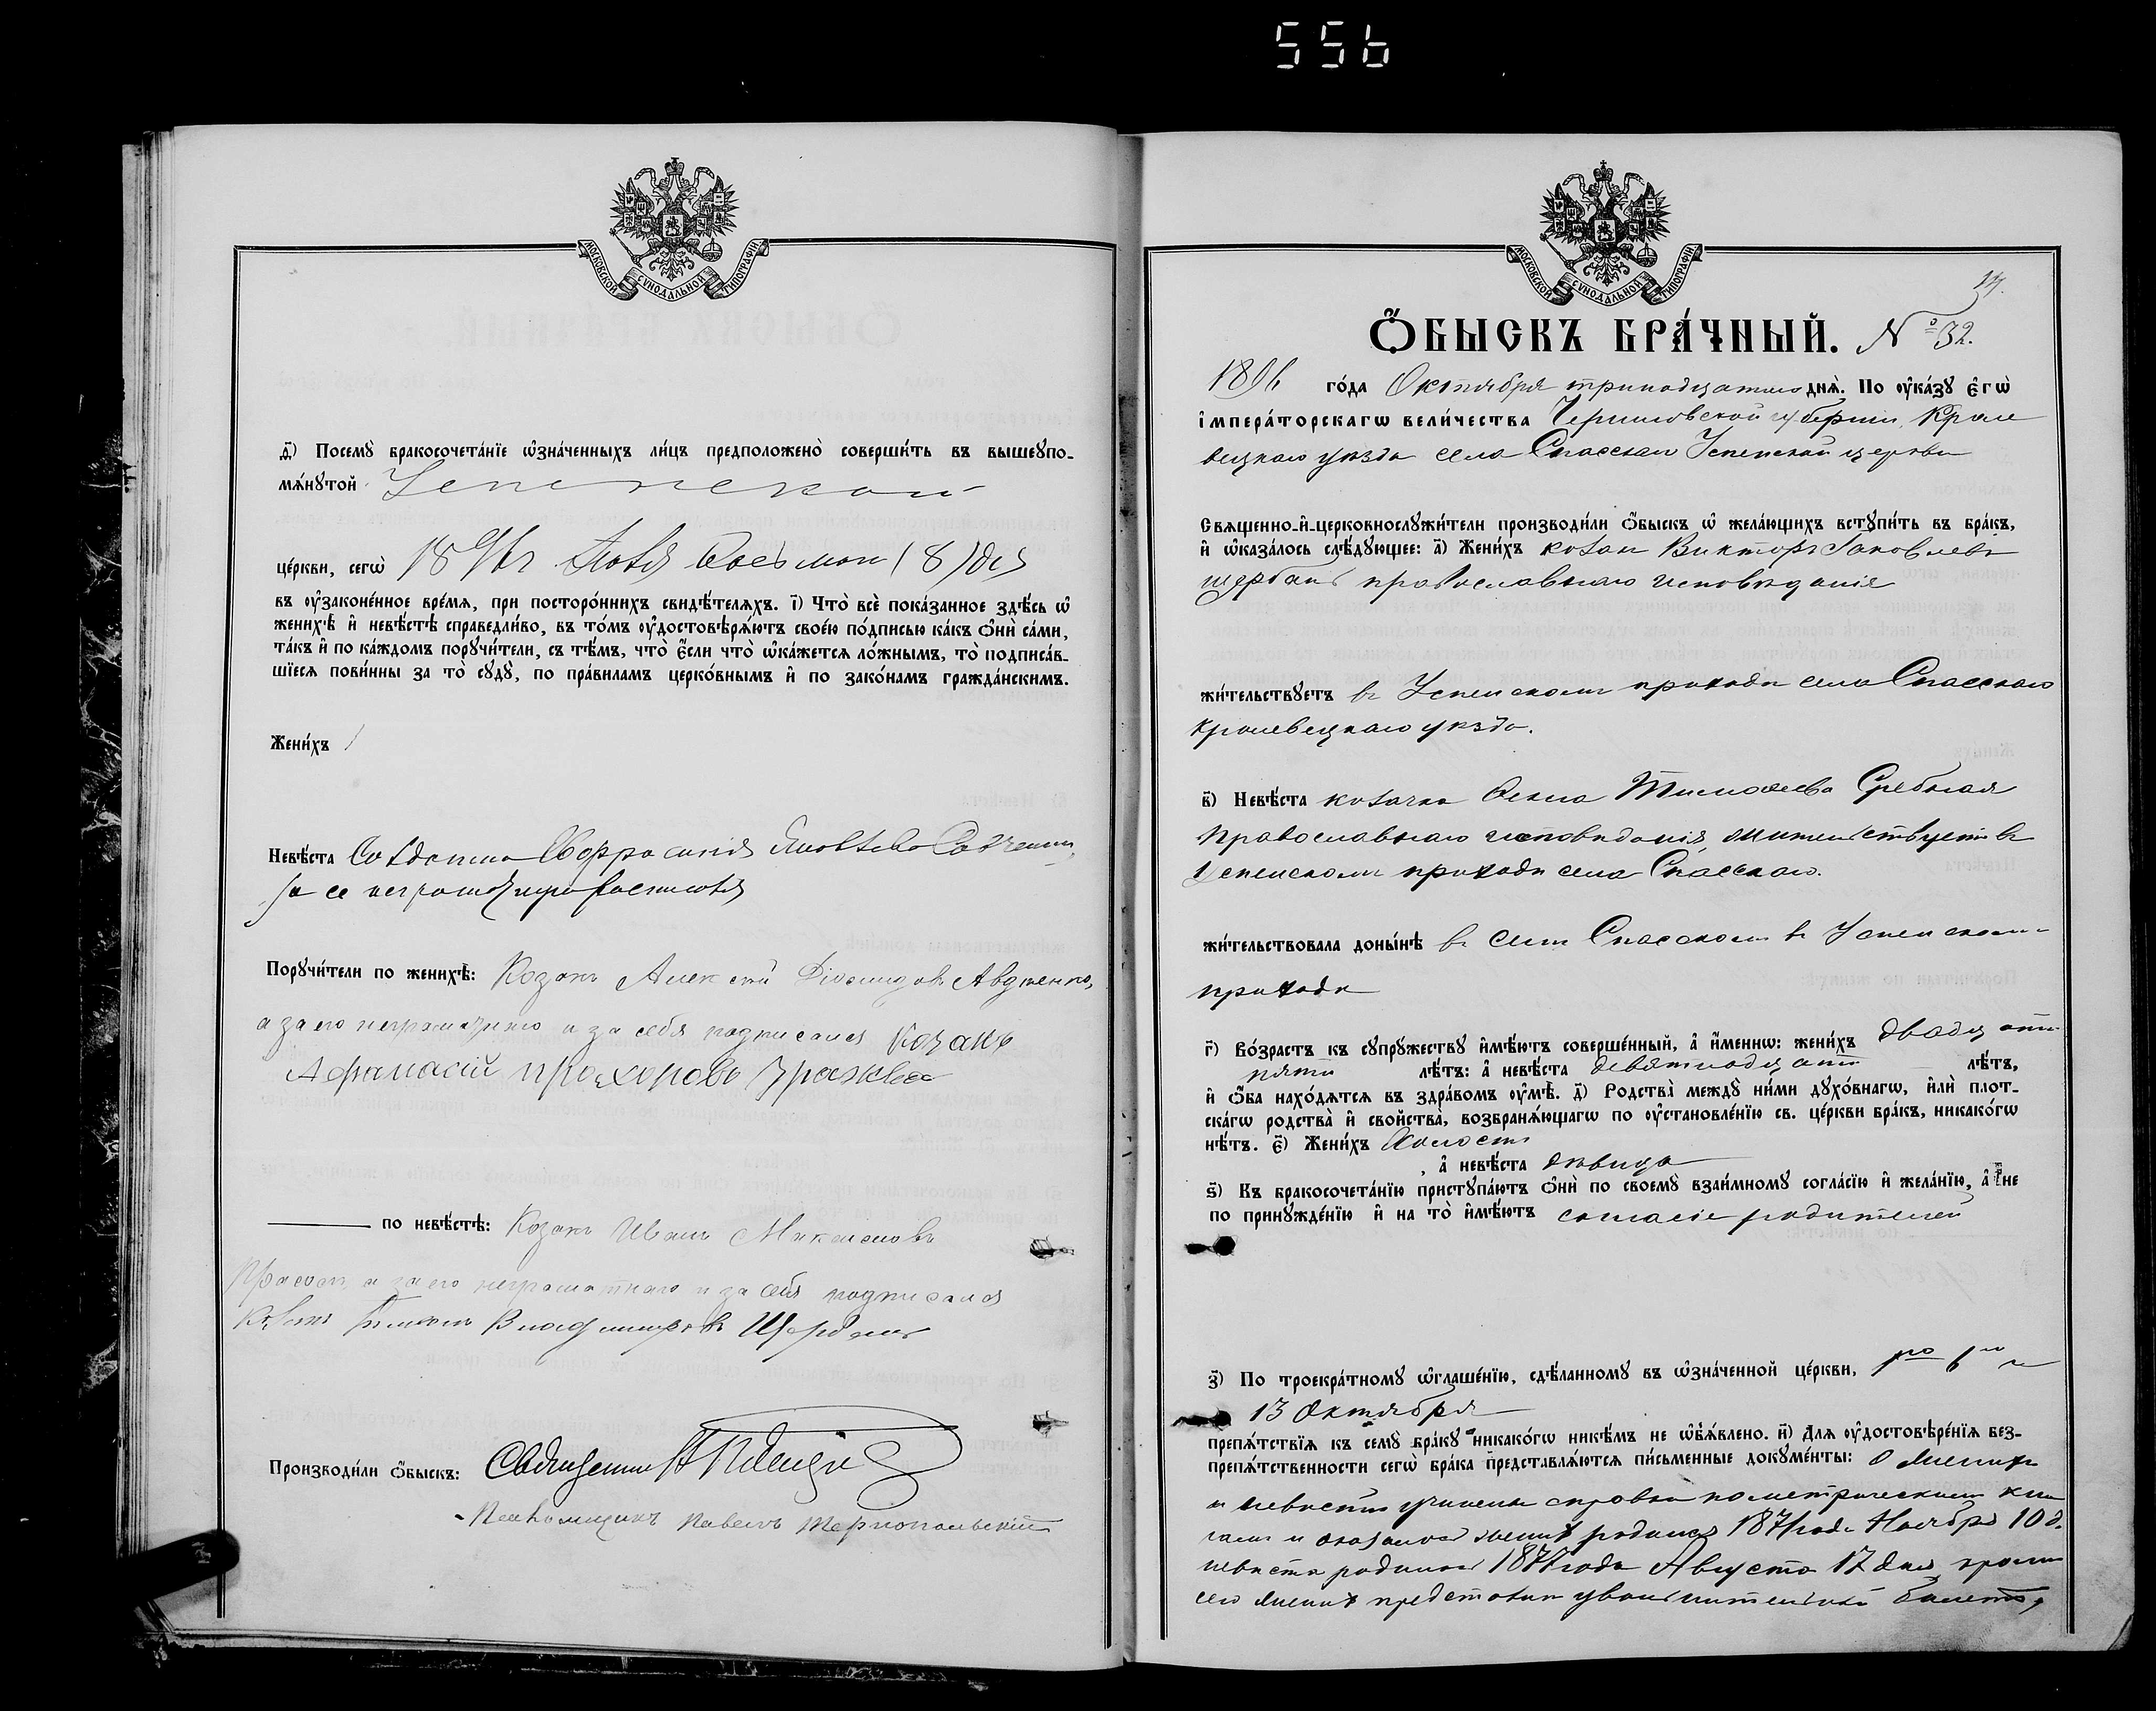 556
МОСКОВСКОЙ СѴНОДАЛЬНОЙ ТИПОГРАФІИ
д҃) Посемꙋ̀ бракосочета́нїе ѡ҆зна́ченныхъ ли́цъ предположено̀ соверши́ть въ вышеꙋпо-
мѧ́нꙋтой Успенской
це́ркви, сегѡ̀ 1896 г (8) дня
въ ᲂу҆законе́нное вре́мѧ, при посторо́ннихъ свидѣ́телѧхъ. і҃) Что̀ всѐ пока́занное здѣ́сь ѡ҆
женихѣ̀ и҆ невѣ́стѣ справедли́во, въ то́мъ ᲂу҆достовѣрѧ́ютъ свое́ю по́дписью ка́къ ѻ҆нѝ са́ми,
та́къ и҆ по ка́ждомъ порꙋчи́тели, съ тѣ́мъ, что̀ є҆́сли что̀ ѡ҆ка́жетсѧ ло́жнымъ, то̀ подписа́в-
шїесѧ пови́нны за то̀ сꙋдꙋ̀, по пра́виламъ церко́внымъ и҆ по зако́намъ гражда́нскимъ.
Жени́хъ
Невѣ́ста Яковлева
за ее
Порꙋчи́тели по женихѣ̀: Козакъ Алексѣй Діомидовъ Авдѣенко,
а за его неграмотнаго и за себя подписался Козакъ
Афанасій прохоровъ Зражква
по невѣ́стѣ: Козакъ Иванъ Максимовъ
а за его неграмотнаго и за себя подписался
Козакъ Владимировъ Щербакъ
Производи́ли ѻ҆́быскъ: Священникъ
Псаломщикъ Павелъ Тернопольскій
МОСКОВСКОЙ СѴНОДАЛЬНОЙ ТИПОГРАФІИ
Ѻ҆́БЫСКЪ БРА́ЧНЫЙ. № 32.
1896 го́да Октября тринадцатаго днѧ̀. По ᲂу҆ка́зꙋ є҆гѡ̀
і҆мпера́торскагѡ вели́чества Черниговской губерніи, Кроле
вецкаго уѣзда села Спасскаго Успенской церкви
Свѧщенно-и҆-церковнослꙋжи́тели производи́ли ѻ҆́быскъ ѡ҆ жела́ющихъ встꙋпи́ть въ бра́къ,
и҆ ѡ҆каза́лось слѣ́дꙋющее: а҃) Жени́хъ козакъ Викторъ Іаковлевъ
щербакъ православнаго исповѣданія
жи́тельствꙋетъ въ Успенскомъ приходѣ села Спасскаго
кролевецкаго уѣзда.
в҃) Невѣ́ста козачка Тимоѳеева Сребная
православнаго исповѣданія, жительствуетъ въ
Успенскомъ приходѣ села Спасскаго.
жи́тельствовала доны́нѣ въ селѣ Спасскомъ въ Успенскомъ
приходѣ
г҃) Во́зрастъ къ сꙋпрꙋ́жествꙋ и҆мѣ́ютъ соверше́нный, а҆ и҆́меннѡ: жени́хъ двадцати
пяти лѣ́тъ: а҆ невѣ́ста девятнадцати лѣ́тъ,
и҆ ѻ҆́ба нахо́дѧтсѧ въ здра́вомъ ᲂу҆мѣ̀. д҃) Родства̀ междꙋ̀ ни́ми дꙋхо́внагѡ, и҆лѝ плот-
ска́гѡ родства̀ и҆ свойства̀, возбранѧ́ющагѡ по ᲂу҆становле́нїю св. це́ркви бра́къ, никако́гѡ
нѣ́тъ. є҃) Жени́хъ холостъ
, а҆ невѣ́ста дѣвица
ѕ҃) Къ бракосочета́нїю пристꙋпа́ютъ ѻ҆нѝ по своемꙋ̀ взаи́мномꙋ согла́сїю и҆ жела́нїю, а҆ не
по принꙋжде́нїю и҆ на то̀ и҆мѣ́ютъ согласіе родителей
з҃) По троекра́тномꙋ ѡ҆глаше́нїю, сдѣ́ланномꙋ въ ѡ҆зна́ченной це́ркви, 1го 6го и
13 Октября
препѧ́тствїѧ къ семꙋ̀ бра́кꙋ никако́гѡ никѣ́мъ не ѡ҆б̾ѧ́влено. и҃) Длѧ ᲂу҆достовѣре́нїѧ без-
препѧ́тственности сегѡ̀ бра́ка представлѧ́ютсѧ пи́сьменные докꙋме́нты: о женихѣ
и невѣстѣ учинена справка по метрическимъ кни
гамъ и оказалось женихъ родился 1871 года Ноября 10 д.
невѣста родилась 1877 года Августа 17 дня, кромѣ
сего женихъ представилъ увольнительный билетъ,